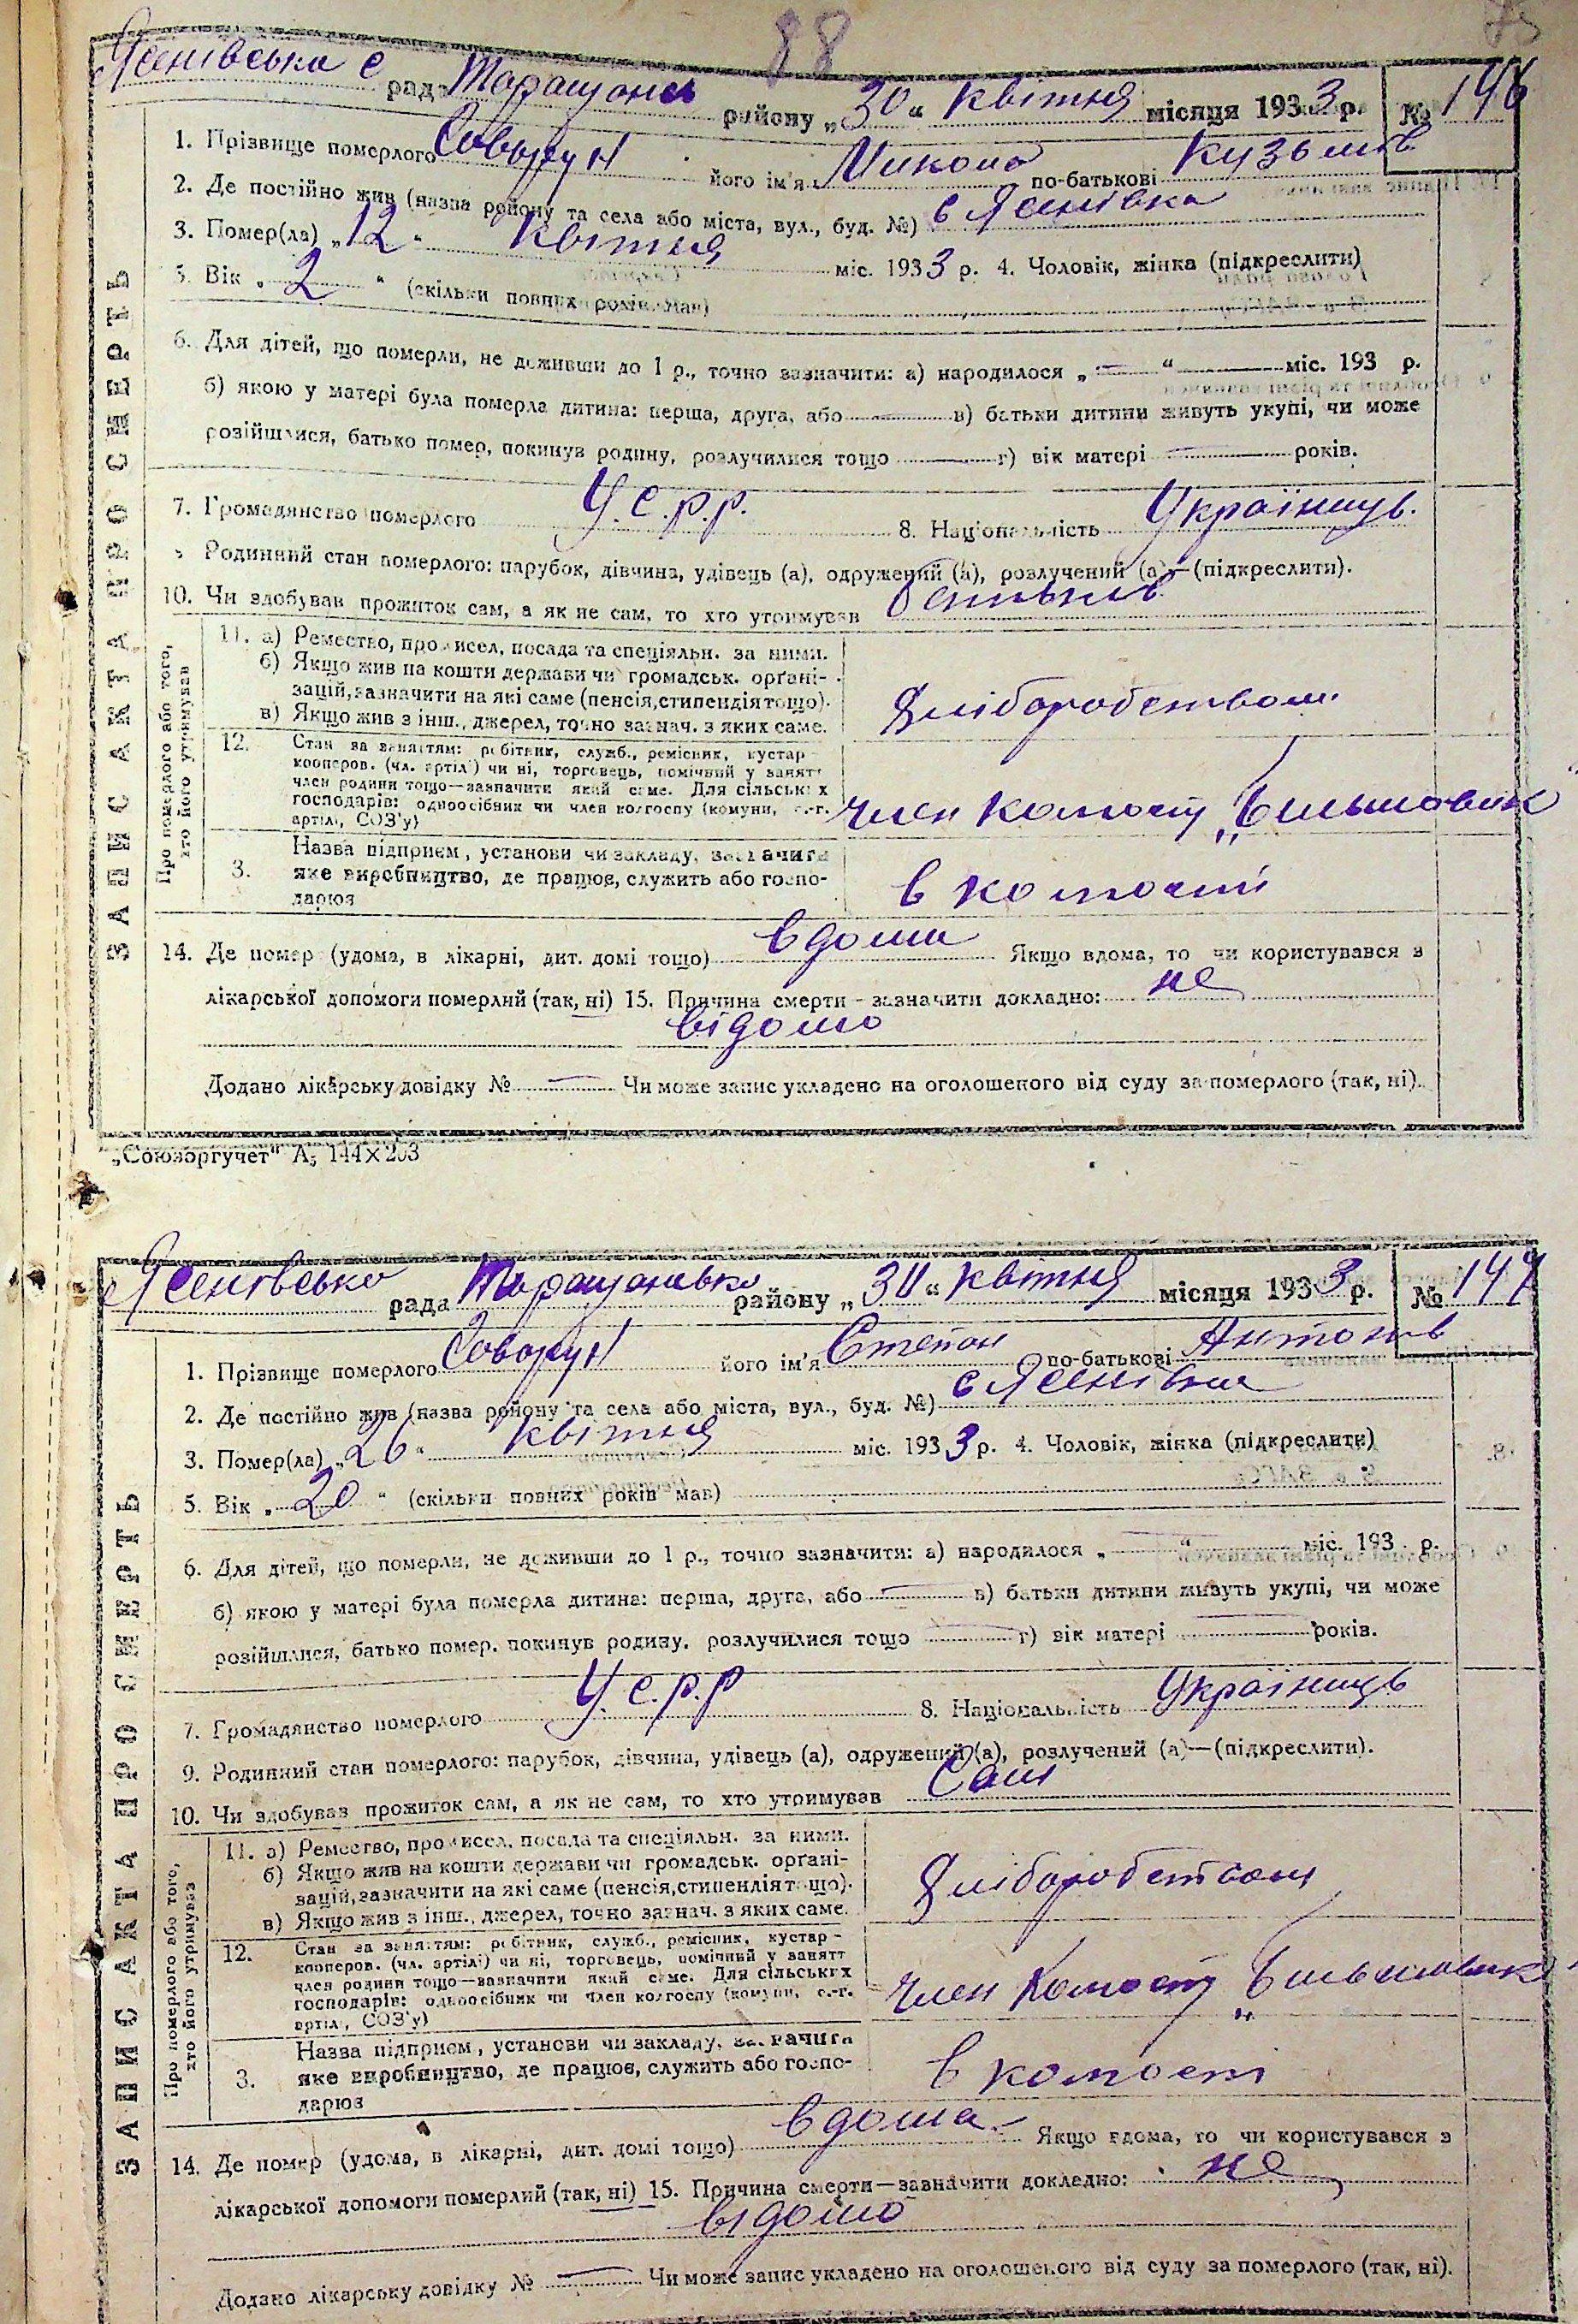 88
Ясенівська с рада Таращанськ району „30“ Квітня місяця 1933 р. № 146
ЗАПИС АКТА ПРО СМЕРТЬ
1. Прізвище померлого Говорун його ім'я Микола по-батькові Кузьмів
2. Де постійно жив (назва району та села або міста, вул., буд. №) с Ясенівка
3. Помер(ла) „12“ Квітня міс. 1933 р. 4. Чоловік, жінка (підкреслити)
5. Вік „2“ (скільки повних років мав)
6. Для дітей, що померли, не доживши до 1 р., точно зазначити: а) народилося „—“ — міс. 193 р.
б) якою у матері була померла дитина: перша, друга, або — в) батьки дитини живуть укупі, чи може
розійшлися, батько помер, покинув родину, розлучилися тощо — г) вік матері — років.
7. Громадянство померлого У.С.Р.Р. 8. Національність Українець.
9 Родинний стан померлого: парубок, дівчина, удівець (а), одружений (а), розлучений (а)—(підкреслити).
10. Чи здобував прожиток сам, а як не сам, то хто утримував батьків
Про померлого або того,
хто його утримував
11. а) Ремество, промисел, посада та спеціяльн. за ними.
б) Якщо жив на кошти держави чи громадськ. органі-
зацій, зазначити на які саме (пенсія, стипендія тощо).
в) Якщо жив з інш., джерел, точно зазнач. з яких саме.
Хліборобством
12. Стан за заняттям: робітник, служб., ремісник, кустар
кооперов. (чл. артілі) чи ні, торговець, помічний у занятт
член родини тощо—зазначити який саме. Для сільських
господарів: одноосібник чи член колгоспу (комуни, с.-г.
артілі, СОЗ'у)
член колгоспу „Більшовик“
3. Назва підприєм., установи чи закладу, зазначити
яке виробництво, де працює, служить або госпо-
дарює
в колгоспі
14. Де помер (удома, в лікарні, дит. домі тощо) вдома Якщо вдома, то чи користувався з
лікарської допомоги померлий (так, ні) 15. Причина смерти - зазначити докладно: не
відомо
Додано лікарську довідку № — Чи може запис укладено на оголошеного від суду за померлого (так, ні).
„Союзоргучет“ А5 144×203
Ясенівська рада Таращанське району „30“ Квітня місяця 1933 р. № 147
ЗАПИС АКТА ПРО СМЕРТЬ
1. Прізвище померлого Говорун його ім'я Степан по-батькові Антонів
2. Де постійно жив (назва району та села або міста, вул., буд. №) с Ясенівка
3. Помер(ла) „26“ Квітня міс. 1933 р. 4. Чоловік, жінка (підкреслити)
5. Вік „20“ (скільки повних років мав)
6. Для дітей, що померли, не доживши до 1 р., точно зазначити: а) народилося „—“ міс. 193 р.
б) якою у матері була померла дитина: перша, друга, або — в) батьки дитини живуть укупі, чи може
розійшлися, батько помер, покинув родину, розлучилися тощо — г) вік матері — років.
7. Громадянство померлого У.С.Р.Р 8. Національність Українець
9. Родинний стан померлого: парубок, дівчина, удівець (а), одружений (а), розлучений (а)—(підкреслити).
10. Чи здобував прожиток сам, а як не сам, то хто утримував Сам
Про померлого або того,
хто його утримував
11. а) Ремество, промисел, посада та спеціяльн. за ними.
б) Якщо жив на кошти держави чи громадськ. органі-
зацій, зазначити на які саме (пенсія, стипендія тощо).
в) Якщо жив з інш., джерел, точно зазнач. з яких саме.
Хліборобством
12. Стан за заняттям: робітник, служб., ремісник, кустар -
кооперов. (чл. артілі) чи ні, торговець, помічний у занятт
член родини тощо—зазначити який саме. Для сільських
господарів: одноосібник чи член колгоспу (комуни, с.-г.
артілі, СОЗ'у)
член колгоспу „Більшовик“
3. Назва підприєм., установи чи закладу, зазначити
яке виробництво, де працює, служить або госпо-
дарює
в колгоспі
14. Де помер (удома, в лікарні, дит. домі тощо) вдома Якщо вдома, то чи користувався з
лікарської допомоги померлий (так, ні) 15. Причина смерти—зазначити докладно: не
відомо
Додано лікарську довідку № — Чи може запис укладено на оголошеного від суду за померлого (так, ні).